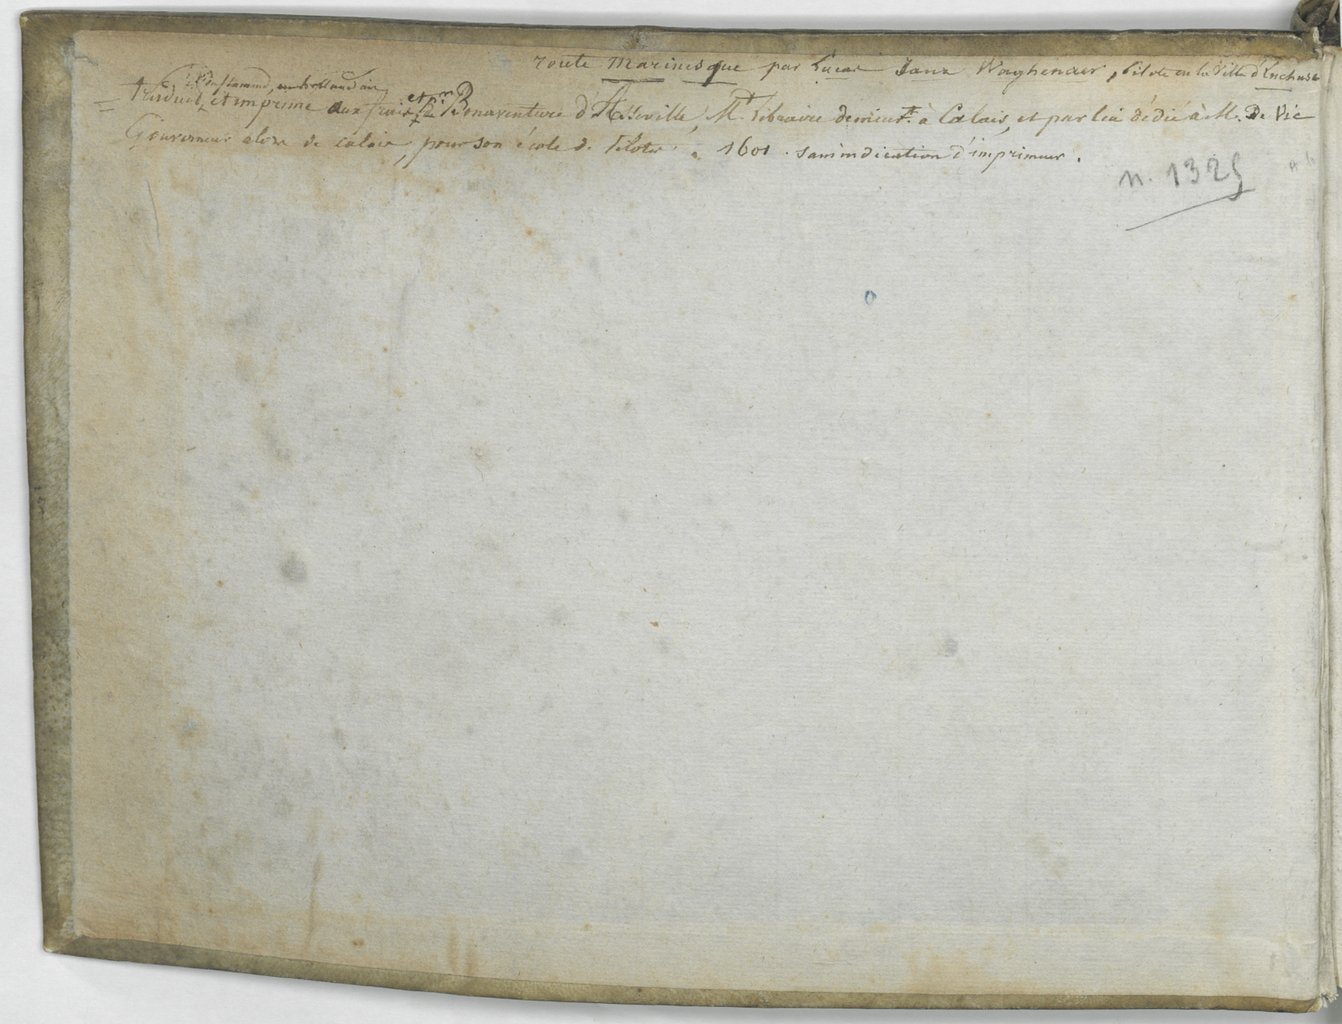 route marinesque par Lucas Janz Waghenaer, Pilote en la Ville d'Enchuse
du flamand, ou hollandais
traduit et imprimé aux frais et par Bonaventure d'Asseville, Md libraire demeurt à Calais, et par lui dédié à M. De Vic
Gouverneur alors de Calais, pour son école de Pilotes. 1601. sans indication d'imprimeur.
n. 1325